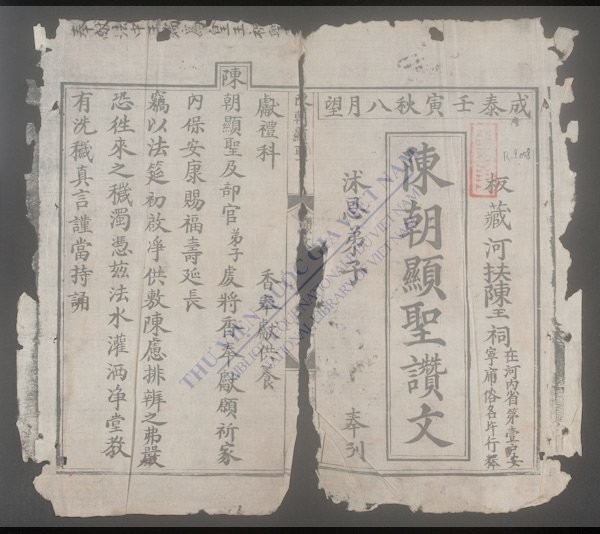 成泰壬寅秋八月望
板藏河扶陳王祠
在河内省第壹
陳朝顯聖讚文
沭恩弟子 奉刋
獻禮科 香奉獻供養
陳朝顯聖及部官弟子虔將香奉獻願祈家
內保安康賜福壽延長
竊以法筵初啟净供敷陳慮排辦之弗嚴
恐徃來之穢濁憑茲法水灌洒净堂敎
有洗穢真言謹當持誦
THƯ VIỆN QUỐC GIA VIỆT NAM
NATIONAL LIBRARY OF VIETNAM